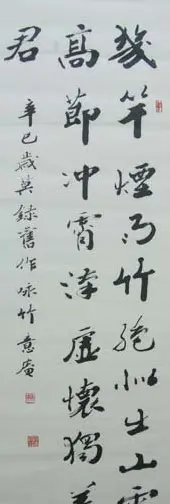 幾竿煙雨竹絕似出山雲
高節沖霄漢虛懷獨羨
君
辛巳歲英錄舊作詠竹意廣